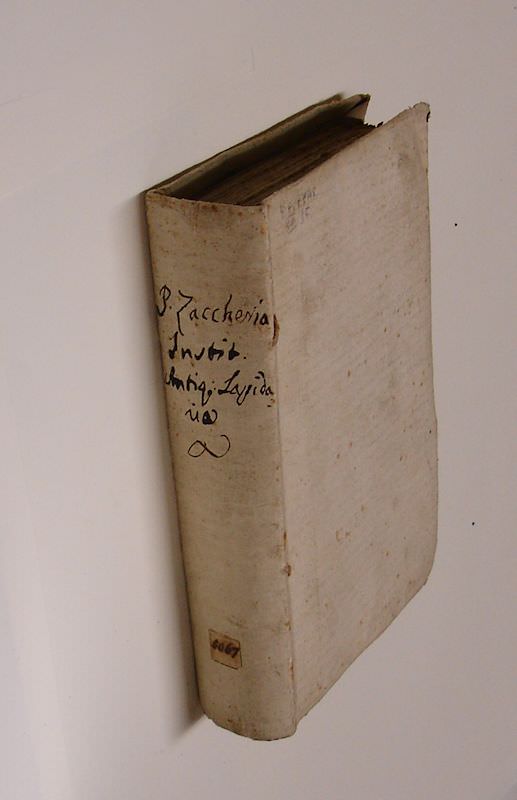 P. Zaccheria
Instit.
Antiq. Lapida
6067